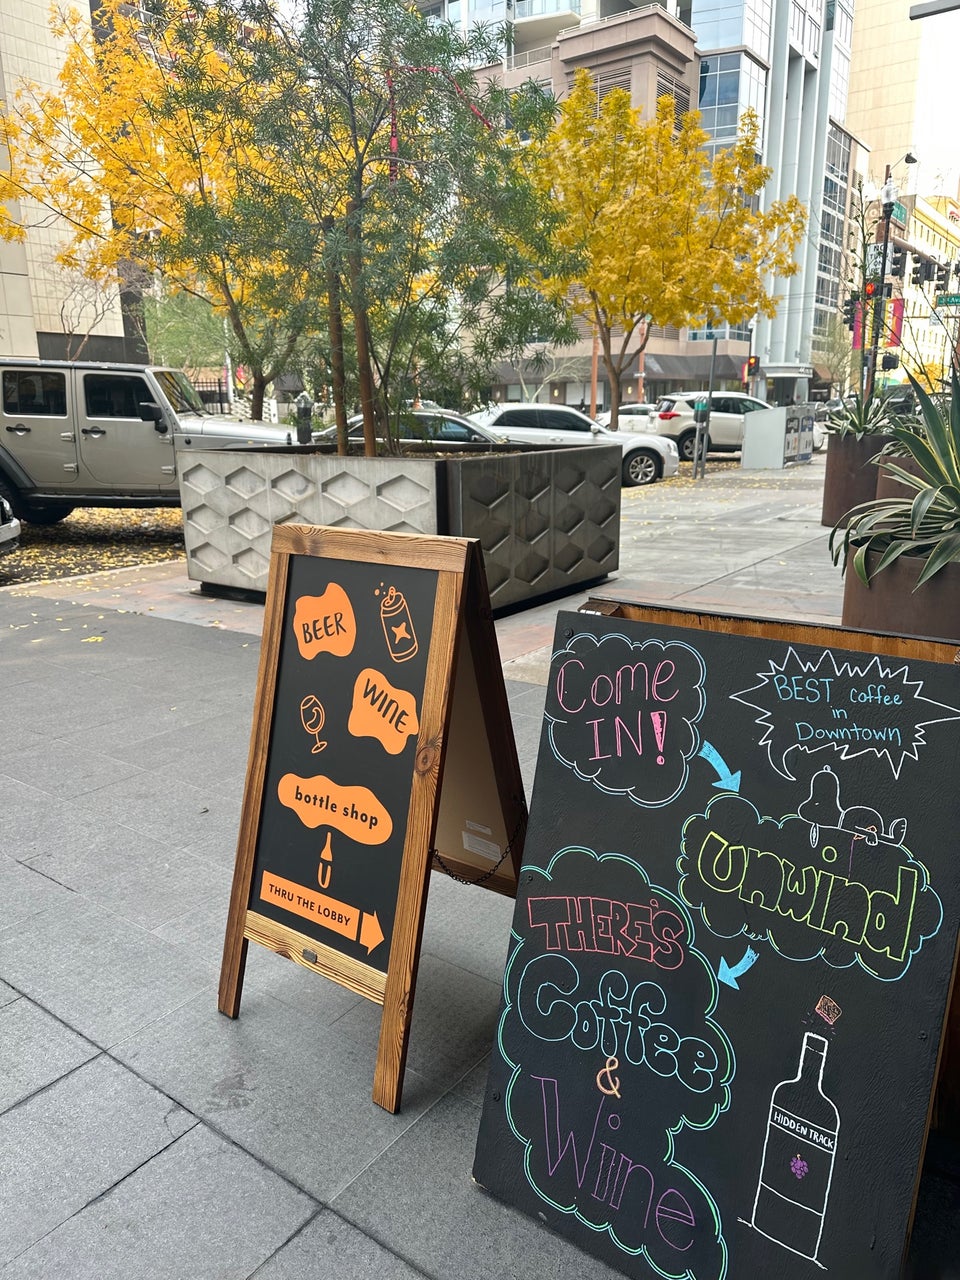 BEER
WINE
bottle shop
THRU THE LOBBY
Come
IN!
BEST coffee
in
Downtown
unwind
THERE'S
Coffee
&
Wine
HIDDEN TRACK